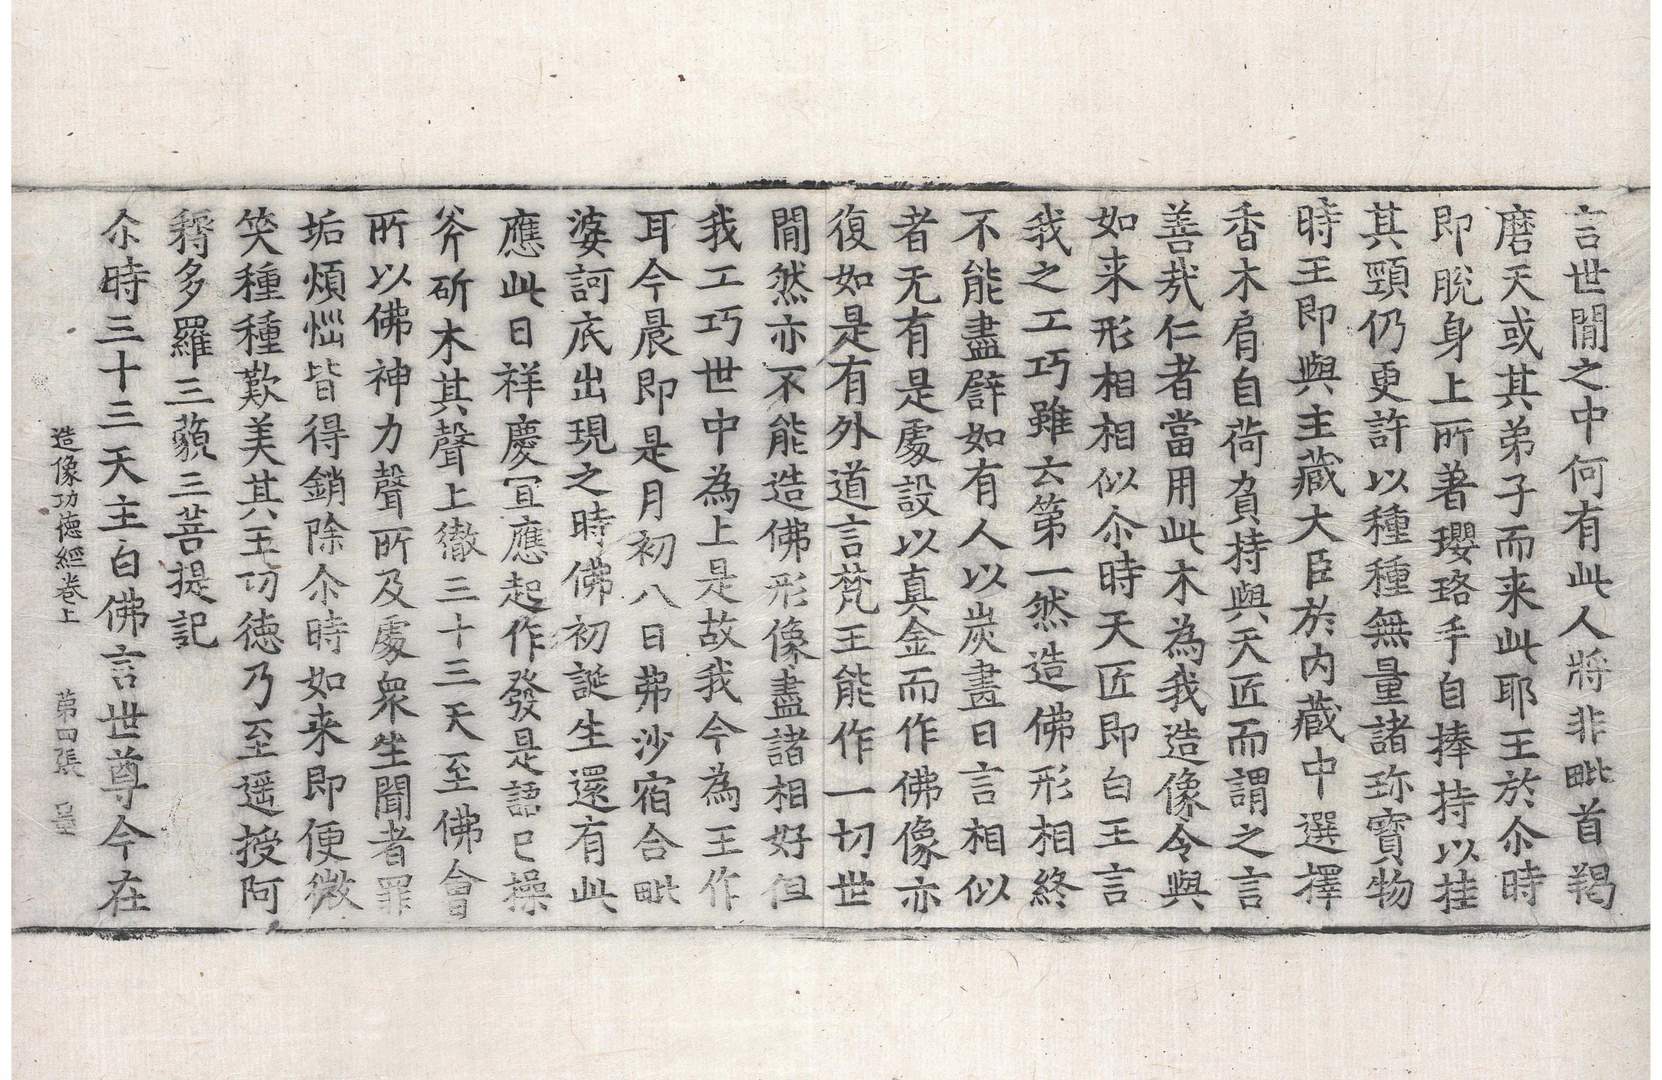 言世閒之中何有此人將非毗首羯
磨天或其弟子而来此耶王於尒時
即脫身上所著瓔珞手自捧持以挂
其頸仍更許以種種無量諸珎寶物
時王即與主藏大臣於內藏中選擇
香木肩自荷負持與天匠而謂之言
善㦲仁者當用此木為我造像令與
如来形相相似尒時天匠即白王言
我之工巧雖云第一然造佛形相終
不能盡譬如有人以炭畫日言相似
者无有是處設以真金而作佛像亦
復如是有外道言梵王能作一切世
閒然亦不能造佛形像盡諸相好但
我工巧世中為上是故我今為王作
耳今晨即是月初八日弗沙宿合毗
婆訶底出現之時佛初誕生還有此
應此日祥慶冝應起作發是語已操
斧斫木其聲上徹三十三天至佛會
所以佛神力聲所及處衆生聞者罪
垢煩惱皆得銷除尒時如来即便微
笑種種歎美其王功德乃至遥授阿
耨多羅三藐三菩提記
尒時三十三天主白佛言世尊今在
造像功德經卷上 第四張 量